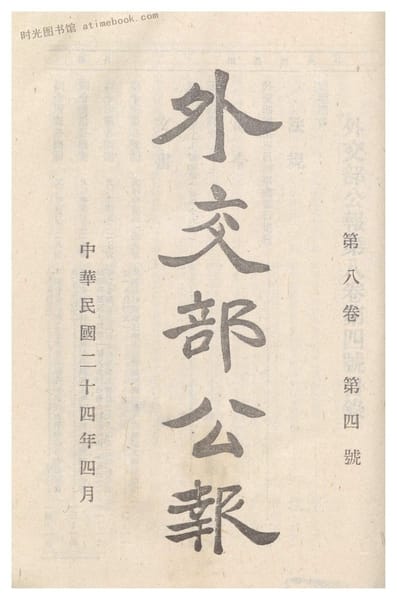 时光图书馆 atimebook.com
第八卷 第四號
外交部公報
中華民國二十四年四月